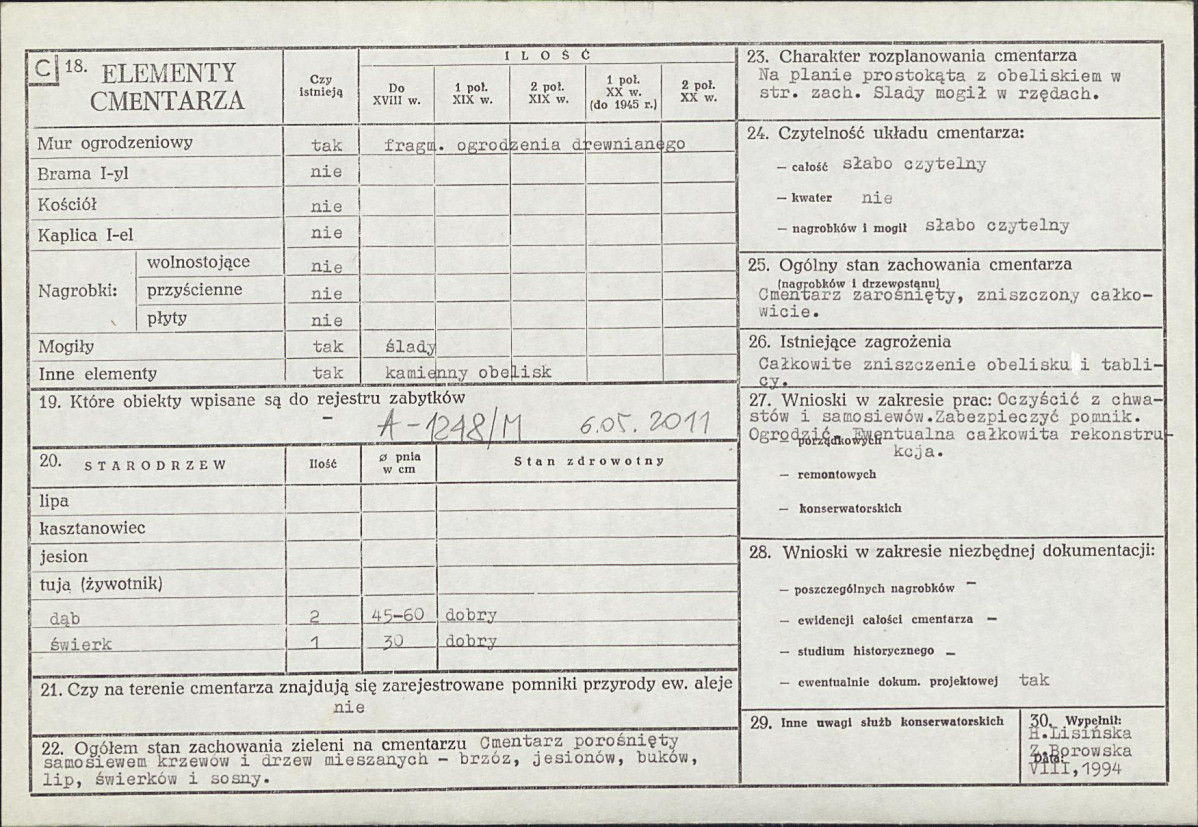 C 18. ELEMENTY CMENTARZA
Czy istnieją
I L O Ś Ć
Do XVIII w.
1 poł. XIX w.
2 poł. XIX w.
1 poł. XX w. (do 1945 r.)
2 poł. XX w.
Mur ogrodzeniowy tak fragm. ogrodzenia drewnianego
Brama I-yl nie
Kościół nie
Kaplica I-el nie
Nagrobki:
wolnostojące nie
przyścienne nie
płyty nie
Mogiły tak ślady
Inne elementy tak kamienny obelisk
19. Które obiekty wpisane są do rejestru zabytków
– A-1248/M 6.05.2011
20. STARODRZEW Ilość ø pnia w cm Stan zdrowotny
lipa
kasztanowiec
jesion
tują (żywotnik)
dąb 2 45-60 dobry
świerk 1 30 dobry
21. Czy na terenie cmentarza znajdują się zarejestrowane pomniki przyrody ew. aleje
nie
22. Ogółem stan zachowania zieleni na cmentarzu Cmentarz porośnięty
samosiewem krzewów i drzew mieszanych - brzóz, jesionów, buków,
lip, świerków i sosny.
23. Charakter rozplanowania cmentarza
Na planie prostokąta z obeliskiem w
str. zach. Slady mogił w rzędach.
24. Czytelność układu cmentarza:
– całość słabo czytelny
– kwater nie
– nagrobków i mogił słabo czytelny
25. Ogólny stan zachowania cmentarza
(nagrobków i drzewostanu)
Cmentarz zarośnięty, zniszczony całko-
wicie.
26. Istniejące zagrożenia
Całkowite zniszczenie obelisku i tabli-
cy.
27. Wnioski w zakresie prac: Oczyścić z chwa-
stów i samosiewów.Zabezpieczyć pomnik.
Ogrodzić. Ewentualna całkowita rekonstru-
kcja.
– porządkowych
– remontowych
– konserwatorskich
28. Wnioski w zakresie niezbędnej dokumentacji:
– poszczególnych nagrobków –
– ewidencji całości cmentarza –
– studium historycznego –
– ewentualnie dokum. projektowej tak
29. Inne uwagi służb konserwatorskich
30. Wypełnił:
H.Lisińska
Z.Borowska
Data:
VIII,1994